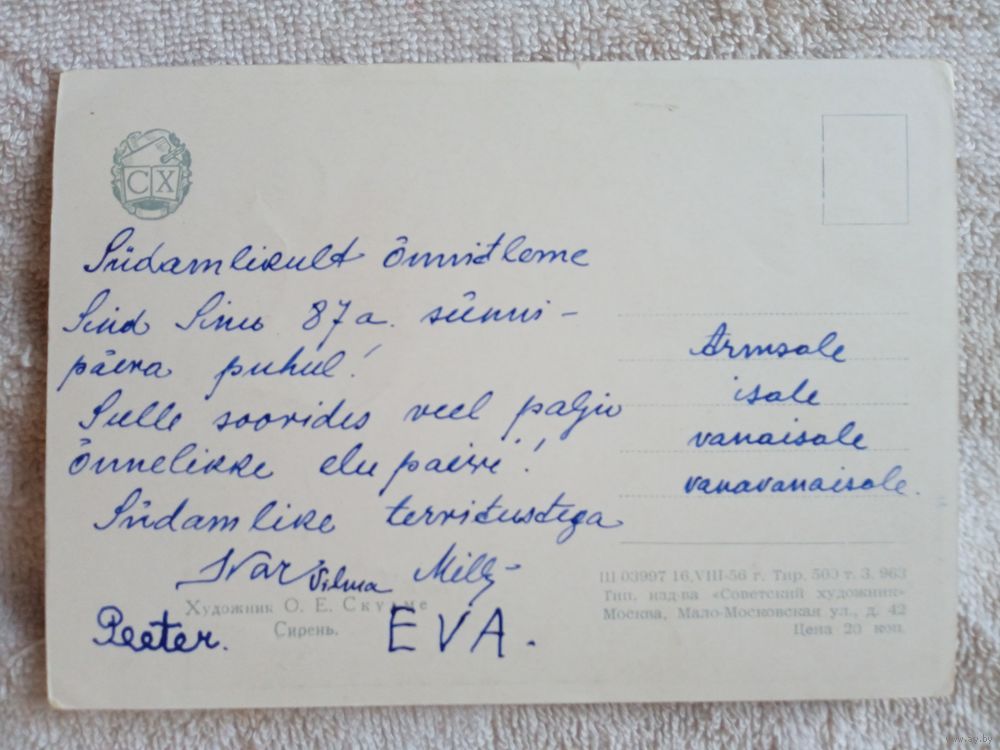 СХ
Südamlikult õnnitleme
Sind Sinu 87a. sünni-
päeva puhul!
Sulle soovides veel palju
õnnelikke elupäevi!
Südamlike tervitustega
Ivar Vilma Milly
Peeter. EVA.
Armsale
isale
vanaisale
vanavanaisale.
Художник О. Е. Скулме
Сирень.
Ш 03997 16.VIII-56 г. Тир. 500 т. З. 963
Тип. изд-ва «Советский художник»
Москва, Мало-Московская ул., д. 42
Цена 20 коп.
www.ay.by